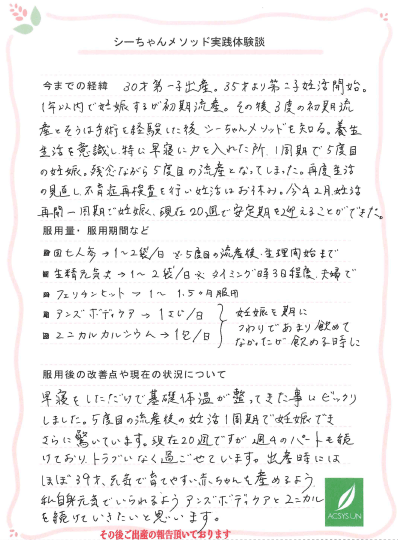 シーちゃんメソッド実践体験談
今までの経緯 30才第一子出産。35才より第二子妊活開始。
1年以内で妊娠するが初期流産。その後3度の初期流
産とそうは手術を経験した後シーちゃんメソッドを知る。養生
生活を意識し特に早寝に力を入れた所、1周期で5度目
の妊娠。残念ながら5度目の流産となってしまった。再度生活
の見直し、不育症再検査を行い妊活はお休み。今年2月妊活
再開一周期で妊娠し、現在20週で安定期を迎えることができた。
服用量・服用期間など
田七人参→1〜2袋/日 ※5度目の流産後、生理開始まで
生精元気丸→1〜2袋/日 ※タイミング時3日程度、夫婦で
フェリチンヒット→1〜1.5ヶ月服用
アンズボディケア→1さじ/日
ユニカルカルシウム→1包/日
妊娠を期に
つわりであまり飲めて
なかったが飲める時に
服用後の改善点や現在の状況について
早寝をしただけで基礎体温が整ってきた事にビックリ
しました。5度目の流産後の妊活1周期で妊娠でき
さらに驚いています。現在20週ですが週4のパートも続
けており、トラブルなく過ごせています。出産時には
ほぼ39才、元気で育てやすい赤ちゃんを産めるよう
私自身元気でいられるようアンズボディケアとユニカル
を続けていきたいと思います。
ACSYS UN
その後ご出産の報告頂いております